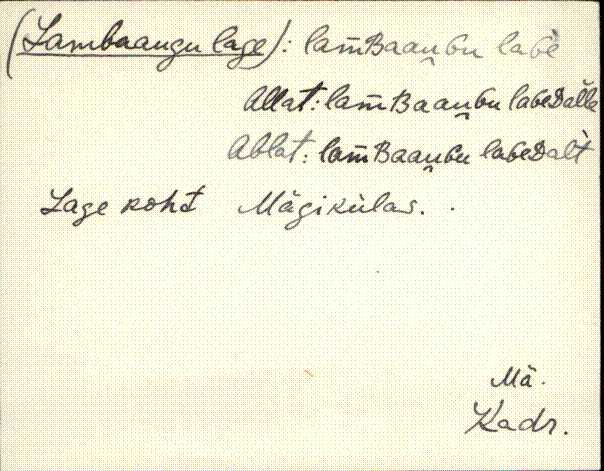 (Lambaaugu lage): lam̄Baau̯gu lagè
Allat: lam̄Baau̯gu lageDal̀le
Ablat: lam̄Baau̯gu lageDal̀t
Lage koht Mägikülas.
Mä.
Kadr.